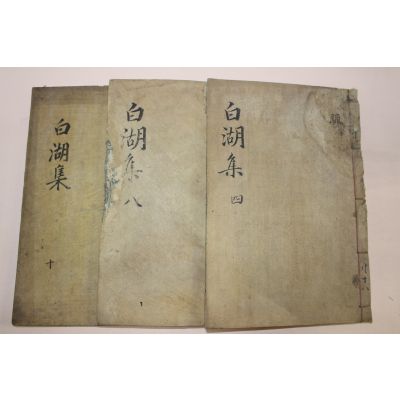 白湖集 四
白湖集 八
白湖集 十
共十八